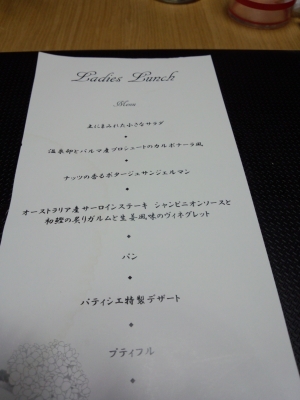 Ladies Lunch
Menu
土にまみれた小さなサラダ
温泉卵とパルマ産プロシュートのカルボナーラ風
ナッツの香るポタージュサンジェルマン
オーストラリア産サーロインステーキ シャンピニオンソースと
和鰹の炙りガルムと生姜風味のヴィネグレット
パン
パティシエ特製デザート
プティフル